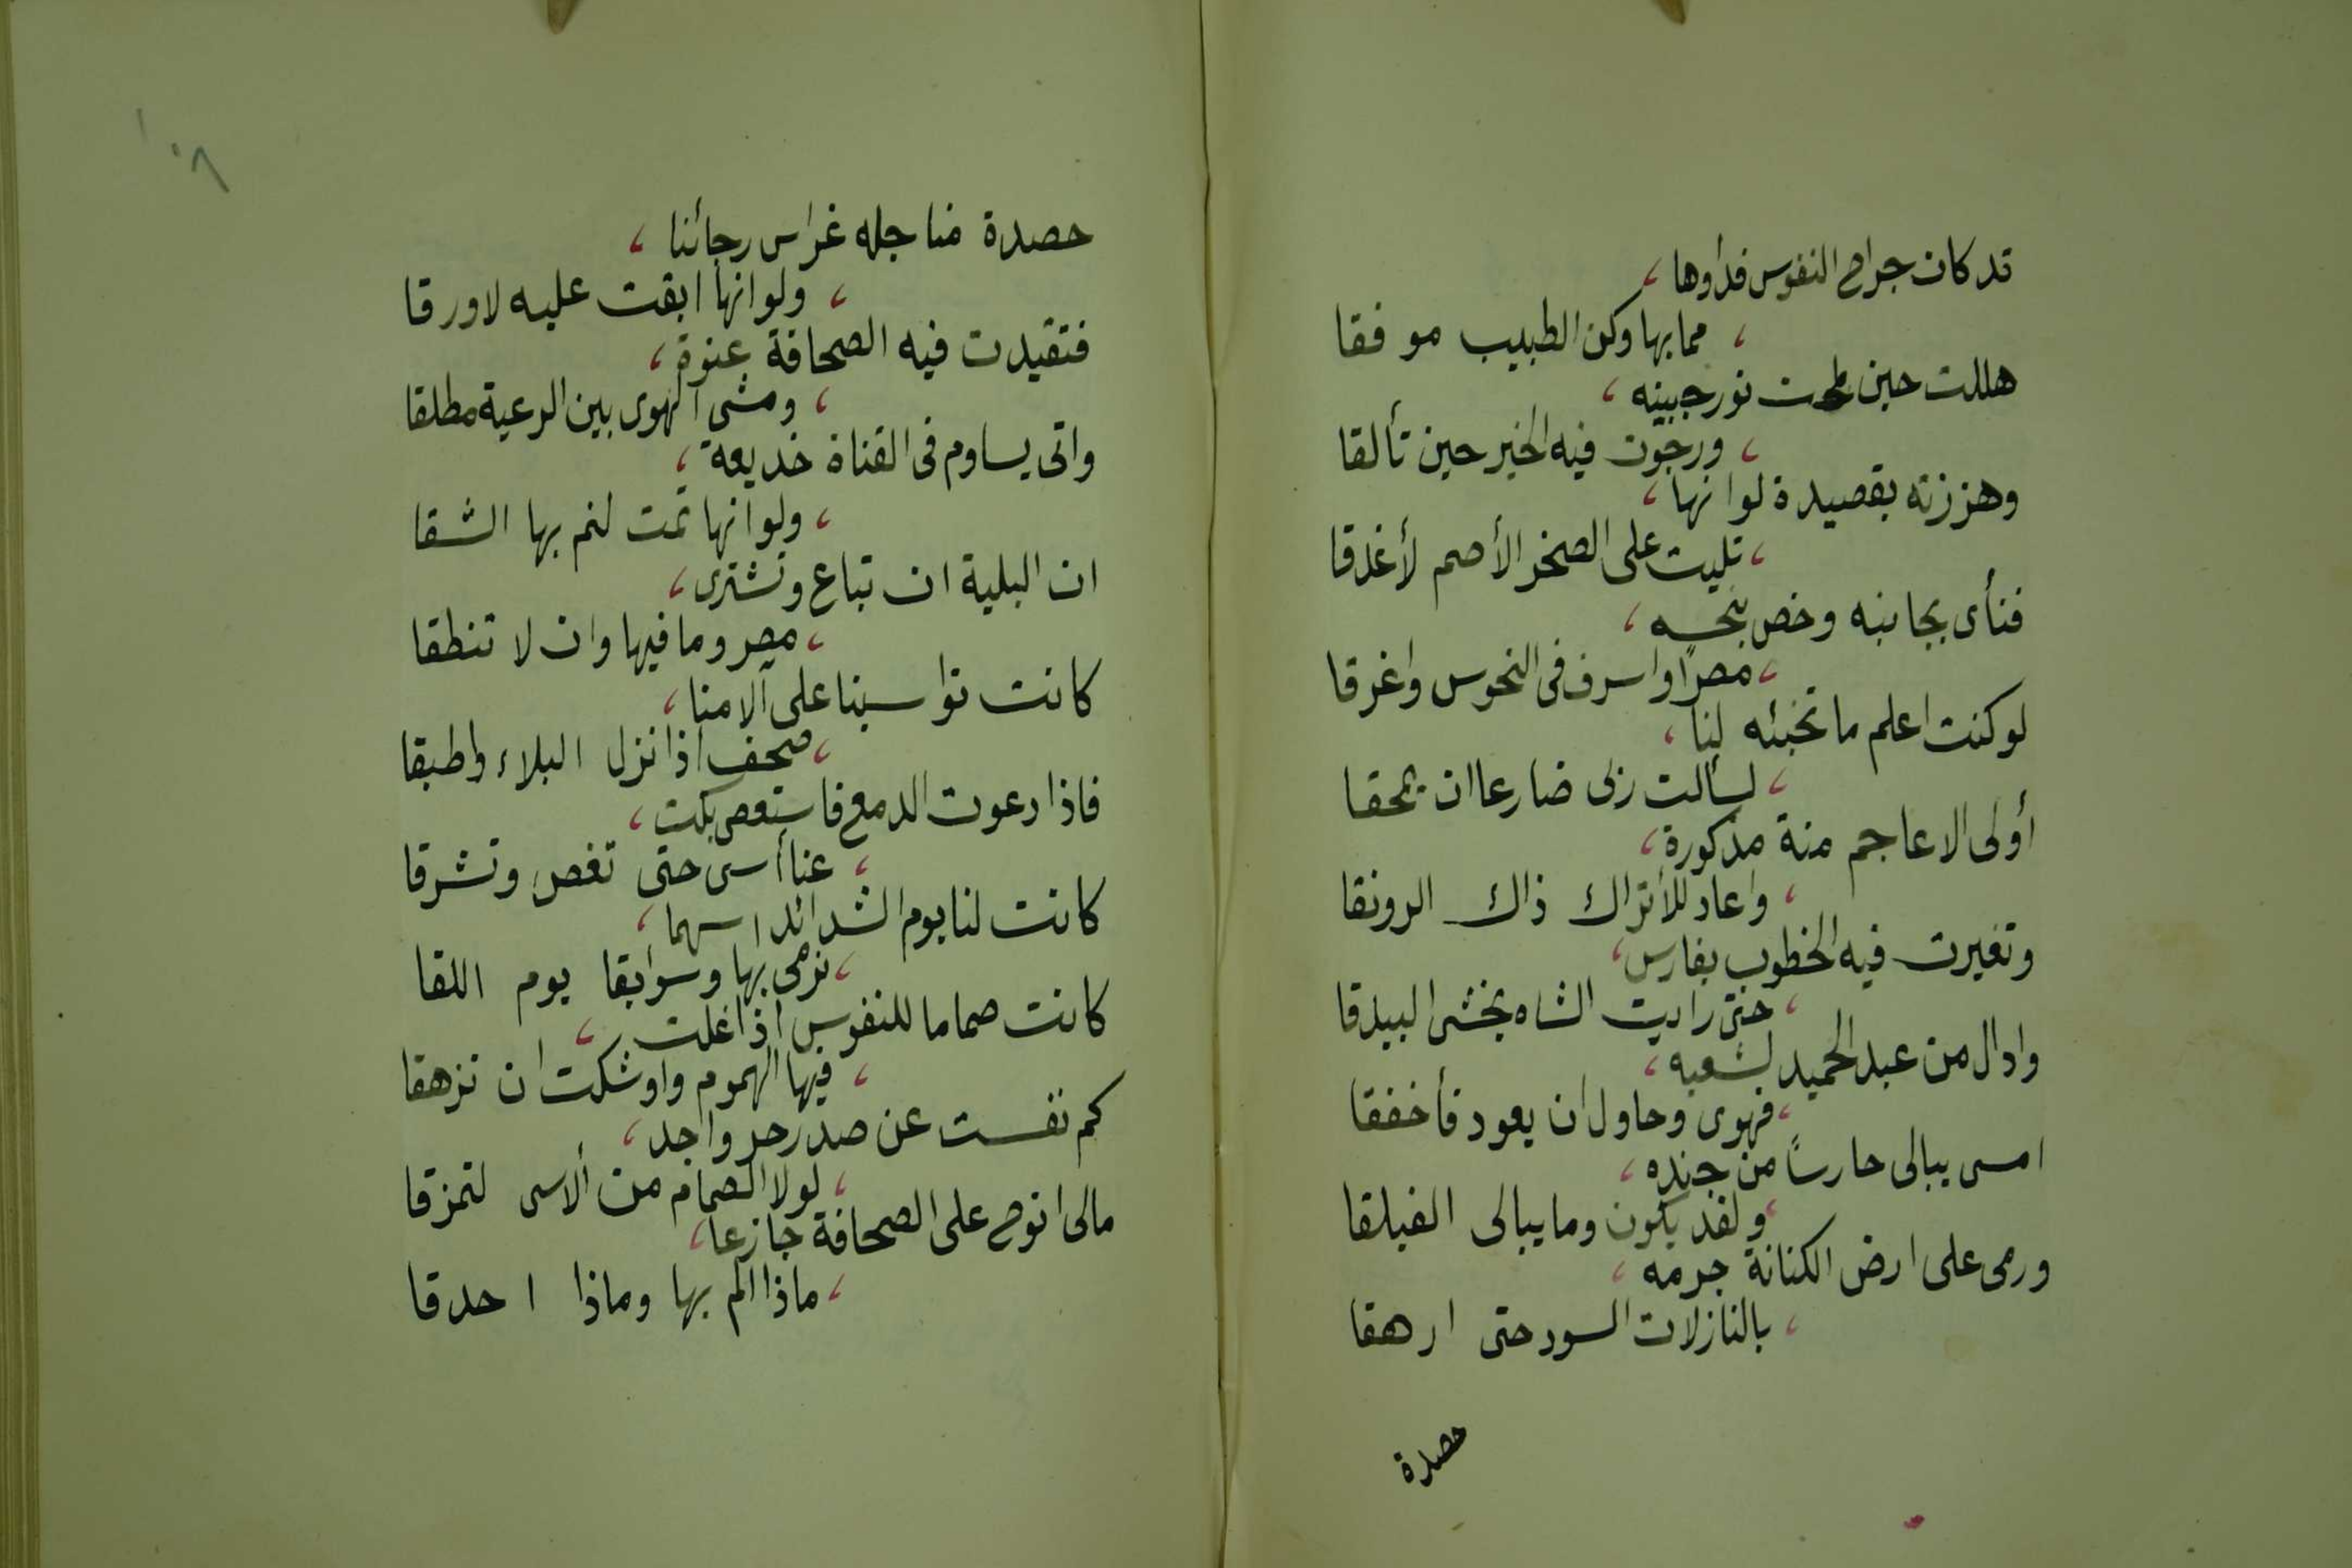 قد كان جراح النفوس فداوها
مما بها وكن الطبيب موفقا
هللت حين لمحت نور جبينه
ورجوت فيه الخير حين تألقا
وهززته بقصيدة لو انها
تليت على الصخر الأصم لأغدقا
فنأى بجانبه وخص بنحسه
مصرًا واسرف فى النحوس واغرقا
لو كنت اعلم ما تخبئه لنا
لسألت ربى ضارعا ان يمحقا
أولى الاعاجم منة مذكورة
واعاد للأتراك ذاك الرونقا
وتغيرت فيه الخطوب بفارس
حتى رايت الشاه يخشى البيدقا
وادال من عبد الحميد لشعبه
فهوى وحاول ان يعود فأخفقا
امسى يبالى حارسًا من جنده
ولقد يكون وما يبالى الفيلقا
ورمى على ارض الكنانة جرمه
بالنازلات السود حتى ارهقا
حصدة
١٠٨
حصدة مناجله غراس رجائنا
ولو انها ابقت عليه لاورقا
فتقيدت فيه الصحافة عنوة
ومشى الهوى بين الرعية مطلقا
واتى يساوم فى القناة خديعة
ولو انها تمت لنم بها الشقا
ان البلية ان تباع وتشترى
مصر وما فيها وان لا تنطقا
كانت تواسينا على آلامنا
صحف اذا نزل البلاء واطبقا
فاذا دعوت الدمع فاستعصى بكت
عنا أسى حتى تغص وتشرقا
كانت لنا يوم الشدائد اسهما
نرمى بها وسوابقا يوم اللقا
كانت صماما للنفوس اذا غلت
فيها الهموم واوشكت ان تزهقا
كم نفست عن صدر حر واجد
لولا الصمام من ألاسى لتمزقا
مالى انوح على الصحافة جازعا
ماذا الم بها وماذا احدقا